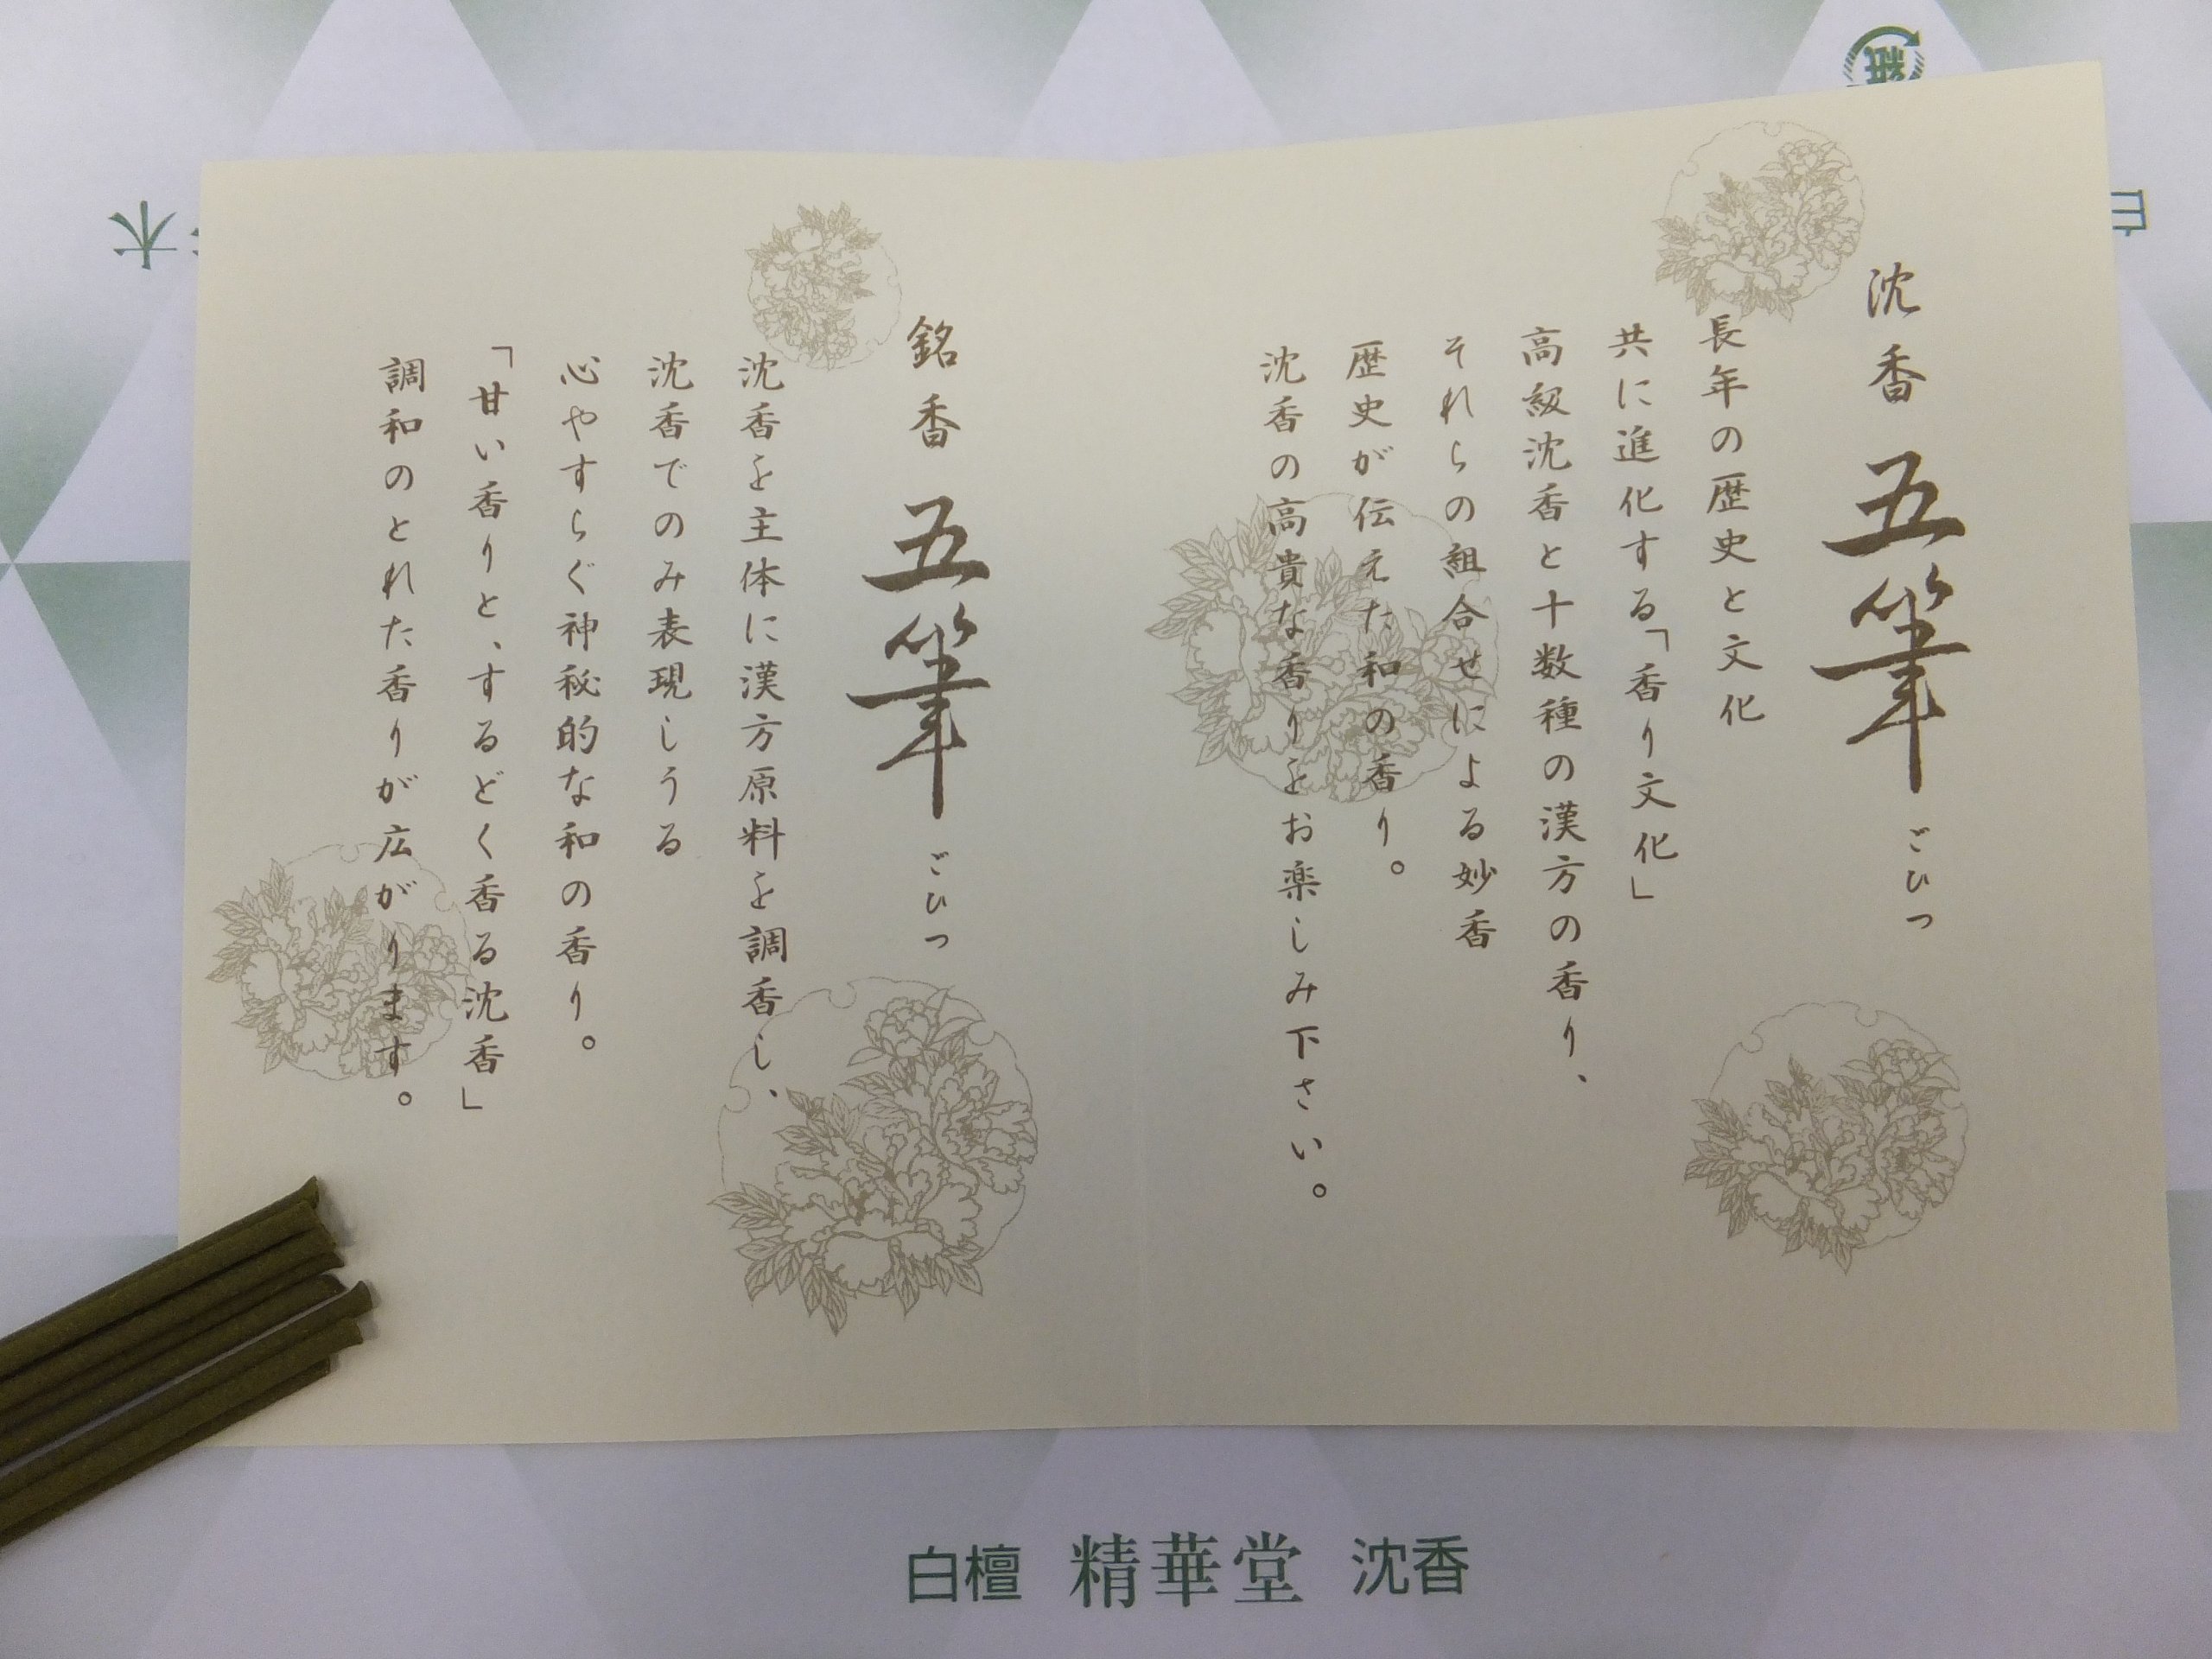 沈香 五筆 ごひつ
長年の歴史と文化
共に進化する「香り文化」
高級沈香と十数種の漢方の香り、
それらの組合せによる妙香
歴史が伝えた和の香り。
沈香の高貴な香りをお楽しみ下さい。
銘香 五筆 ごひつ
沈香を主体に漢方原料を調香し、
沈香でのみ表現しうる
心やすらぐ神秘的な和の香り。
「甘い香りと、するどく香る沈香」
調和のとれた香りが広がります。
白檀 精華堂 沈香